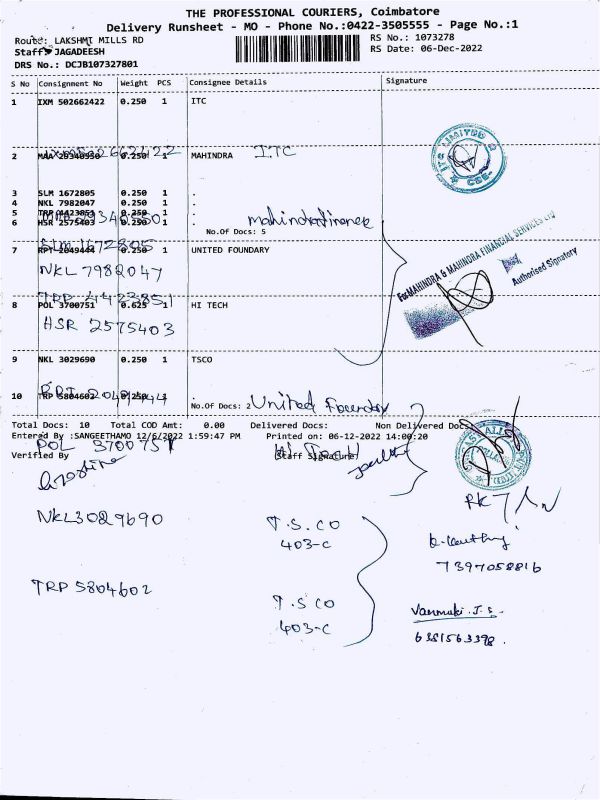 THE PROFESSIONAL COURIERS, Coimbatore
Delivery Runsheet - MO - Phone No.:0422-3505555 - Page No.:1
Route: LAKSHMI MILLS RD
RS No.: 1073278
Staff: JAGADEESH
RS Date: 06-Dec-2022
DRS No.: DCJB107327801
S No Consignment No Weight PCS Consignee Details Signature
1 IXM 502662422 0.250 1 ITC
ITC LIMITED
IXM 502662422 ITC
2 MAA 29340550 0.250 1 MAHINDRA
3 SLM 1672805 0.250 1 .
4 NKL 7982047 0.250 1 .
5 TRP 4423851 0.250 1 .
6 HSR 2575403 0.250 1 .
MAA 29340550 mahindra finance
No.Of Docs: 5
For MAHINDRA & MAHINDRA FINANCIAL SERVICES LTD
Authorised Signatory
SLM 1672805
7 RPT 2049444 0.250 1 UNITED FOUNDARY
NKL 7982047
TRP 4423851
8 POL 3700751 0.625 1 HI TECH
HSR 2575403
9 NKL 3029690 0.250 1 TSCO
10 TRP 5804602 0.250 1 .
RPT 2049444 United Foundary
No.Of Docs: 2
Total Docs: 10 Total COD Amt: 0.00 Delivered Docs: Non Delivered Docs
Entered By :SANGEETHAMO 12/6/2022 1:59:47 PM Printed on: 06-12-2022 14:00:20
POL 3700751 Hi Tech
Verified By (Staff Signature)
NKL3029690 T.S.CO
403-C
7397058816
TRP 5804602 T.SCO
403-C
Vanmuki.J.S.
6381563398.